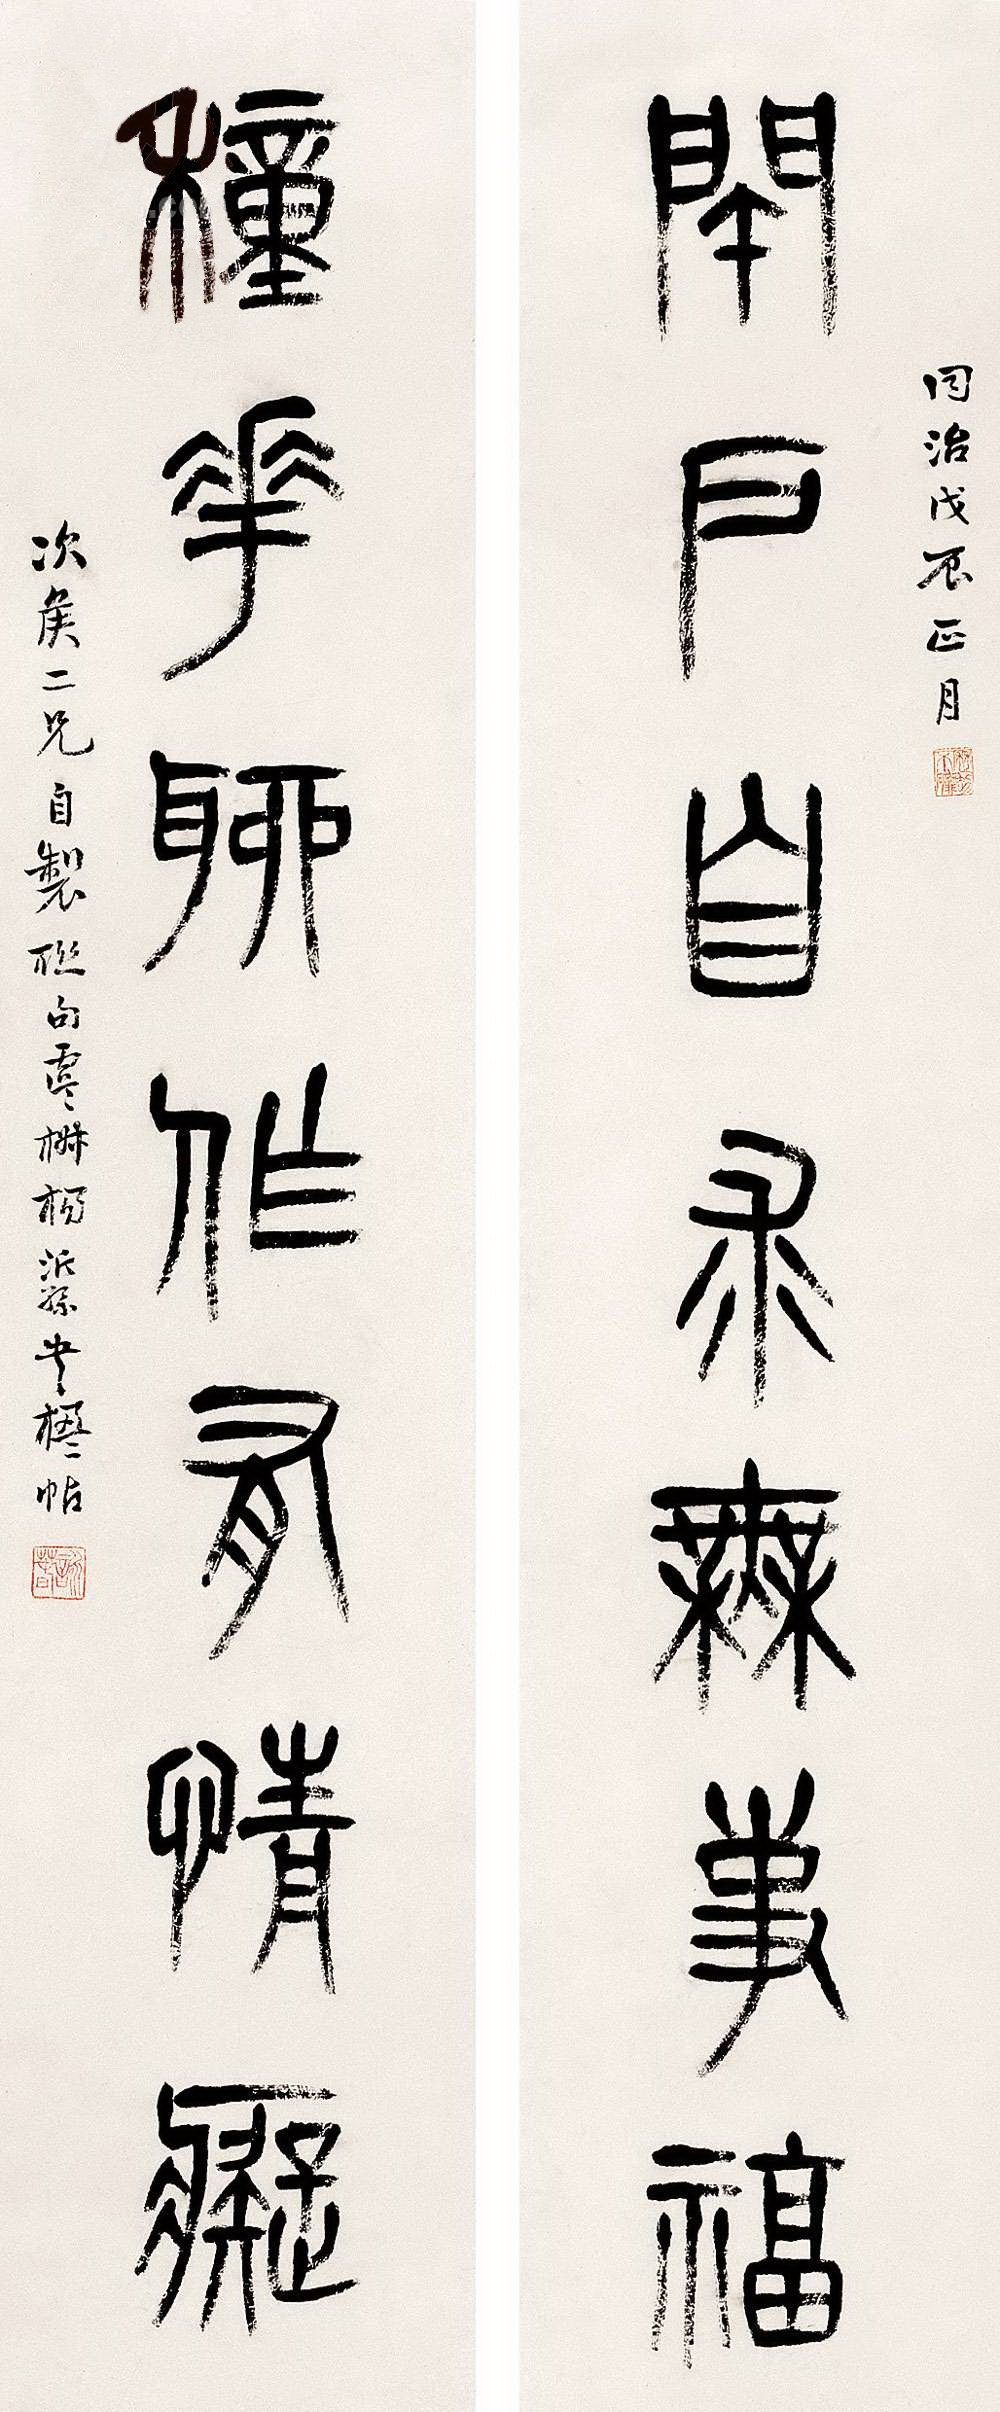 同治戊辰正月
閉戶自求無事福
種華聊作有情癡
次侯二兄自製聯句楊沂孫書楹帖